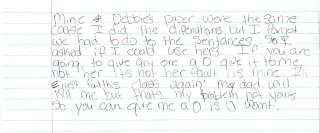 Mine & Debbies paper were the same
cause I did the difenations but I forgot
we had to do the sentances so I
asked if I could use hers. If you are
going to give any one a 0 give it to me,
not her its not her fault its mine I'll
just fail this class again my dad will
kill me but thats my problem not yours
so you can give me a 0 is U want.